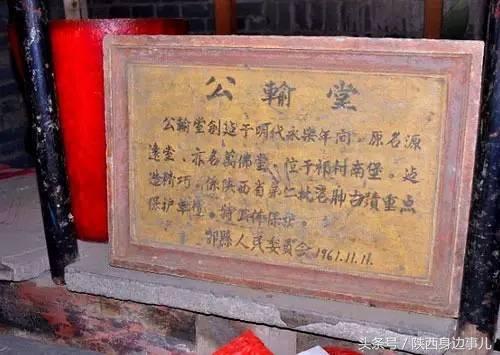 公輸堂
公輸堂創造于明代永樂年间。原名源
遠堂、亦名萬佛堂、位于祁村南堡。建
造精巧。係陝西省第二批名胜古蹟重點
保护單位。特保护。
鄠縣人民委員会1961.11.11.
头条号 / 陕西身边事儿